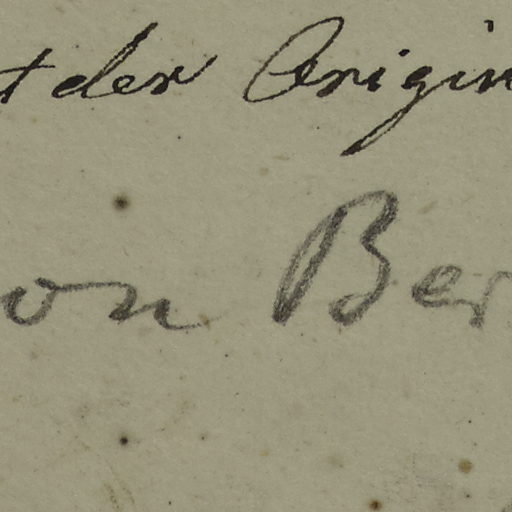 t der Origin
on Ber